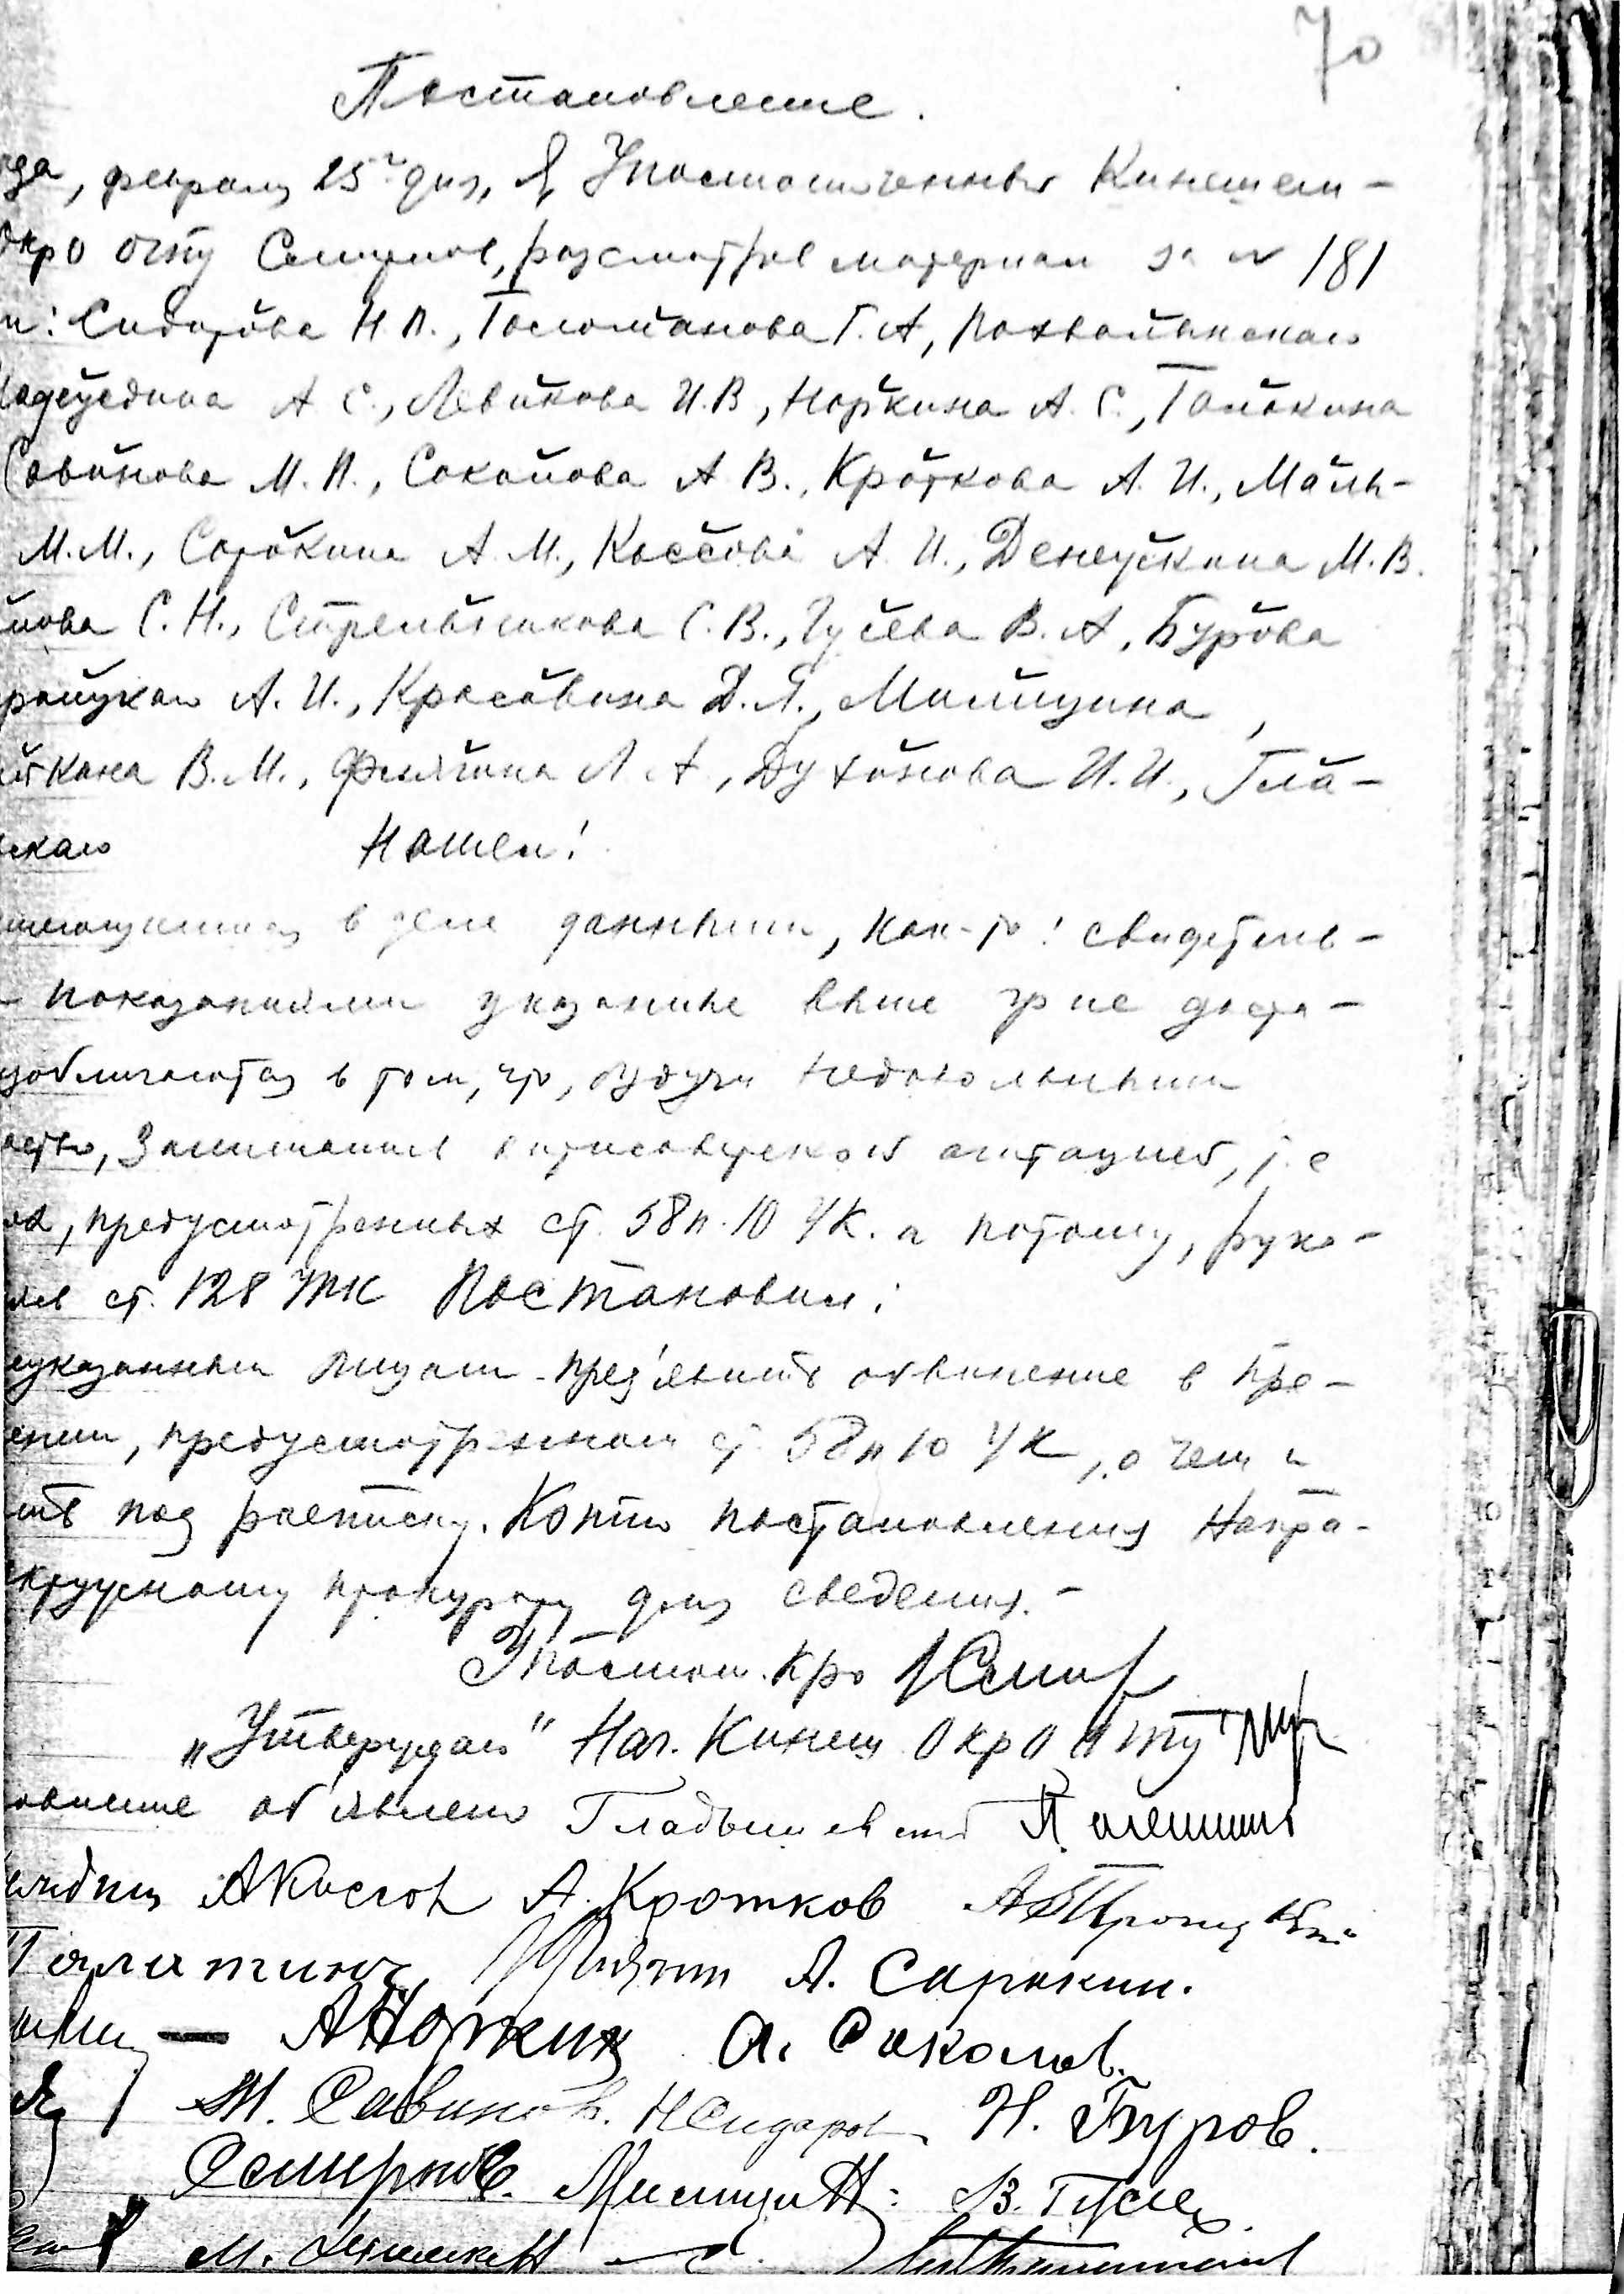 70
Постановление.
да, февраля 25го дня, Я, Уполномоченный Кинешем-
окро огпу Смирнов, рассмотрев материал за № 181
и: Сидорова Н.П., Голованова Г.А, Похвалынскаго
А С., Левикова И.В, Норкина А.С., Галакина
Савинова М.П., Соколова А В., Кроткова А. И., Маль-
М.М., Сорокина А.М., Коссова А. И., Денежкина М.В.
нова С.Н., Стрельникова С.В., Гусева В.А, Бурова
роицкаго А.И., Красавина Д.Я., Милицина,
кина В.М., Филягина Л А, Духанова И.И., Гла-
скаго Нашел:
имеющимися в деле данными, как-то: свидетель-
- показаниями указанные выше гр не доста-
изобличаются в том, что, будучи недовольными
асть, занимались антисоветской агитацией, т.е
предусмотренных ст. 58 п. 10 УК. а потому, руко-
ст. 128 УПК Постановил:
еуказанным лицам пред'явить обвинение в пре-
ении, предусмотренном ст 58 п 10 УК, о чем и
ить под расписку. Копию постановления напра-
кружному прокурору для сведения.-
Уполном. Кро Смир
„Утверждаю" Нач. Кинеш ОкрО ОГПУ
овление об'явлено Гладышевский
АКоссов А. Кротков А Троицкий
Галатина А. Сорокин.
— АНоркин А. Соколов.
М. Савинов. НСидоров Н. Буров.
Смирнов. Милицин В. Гусев
М.